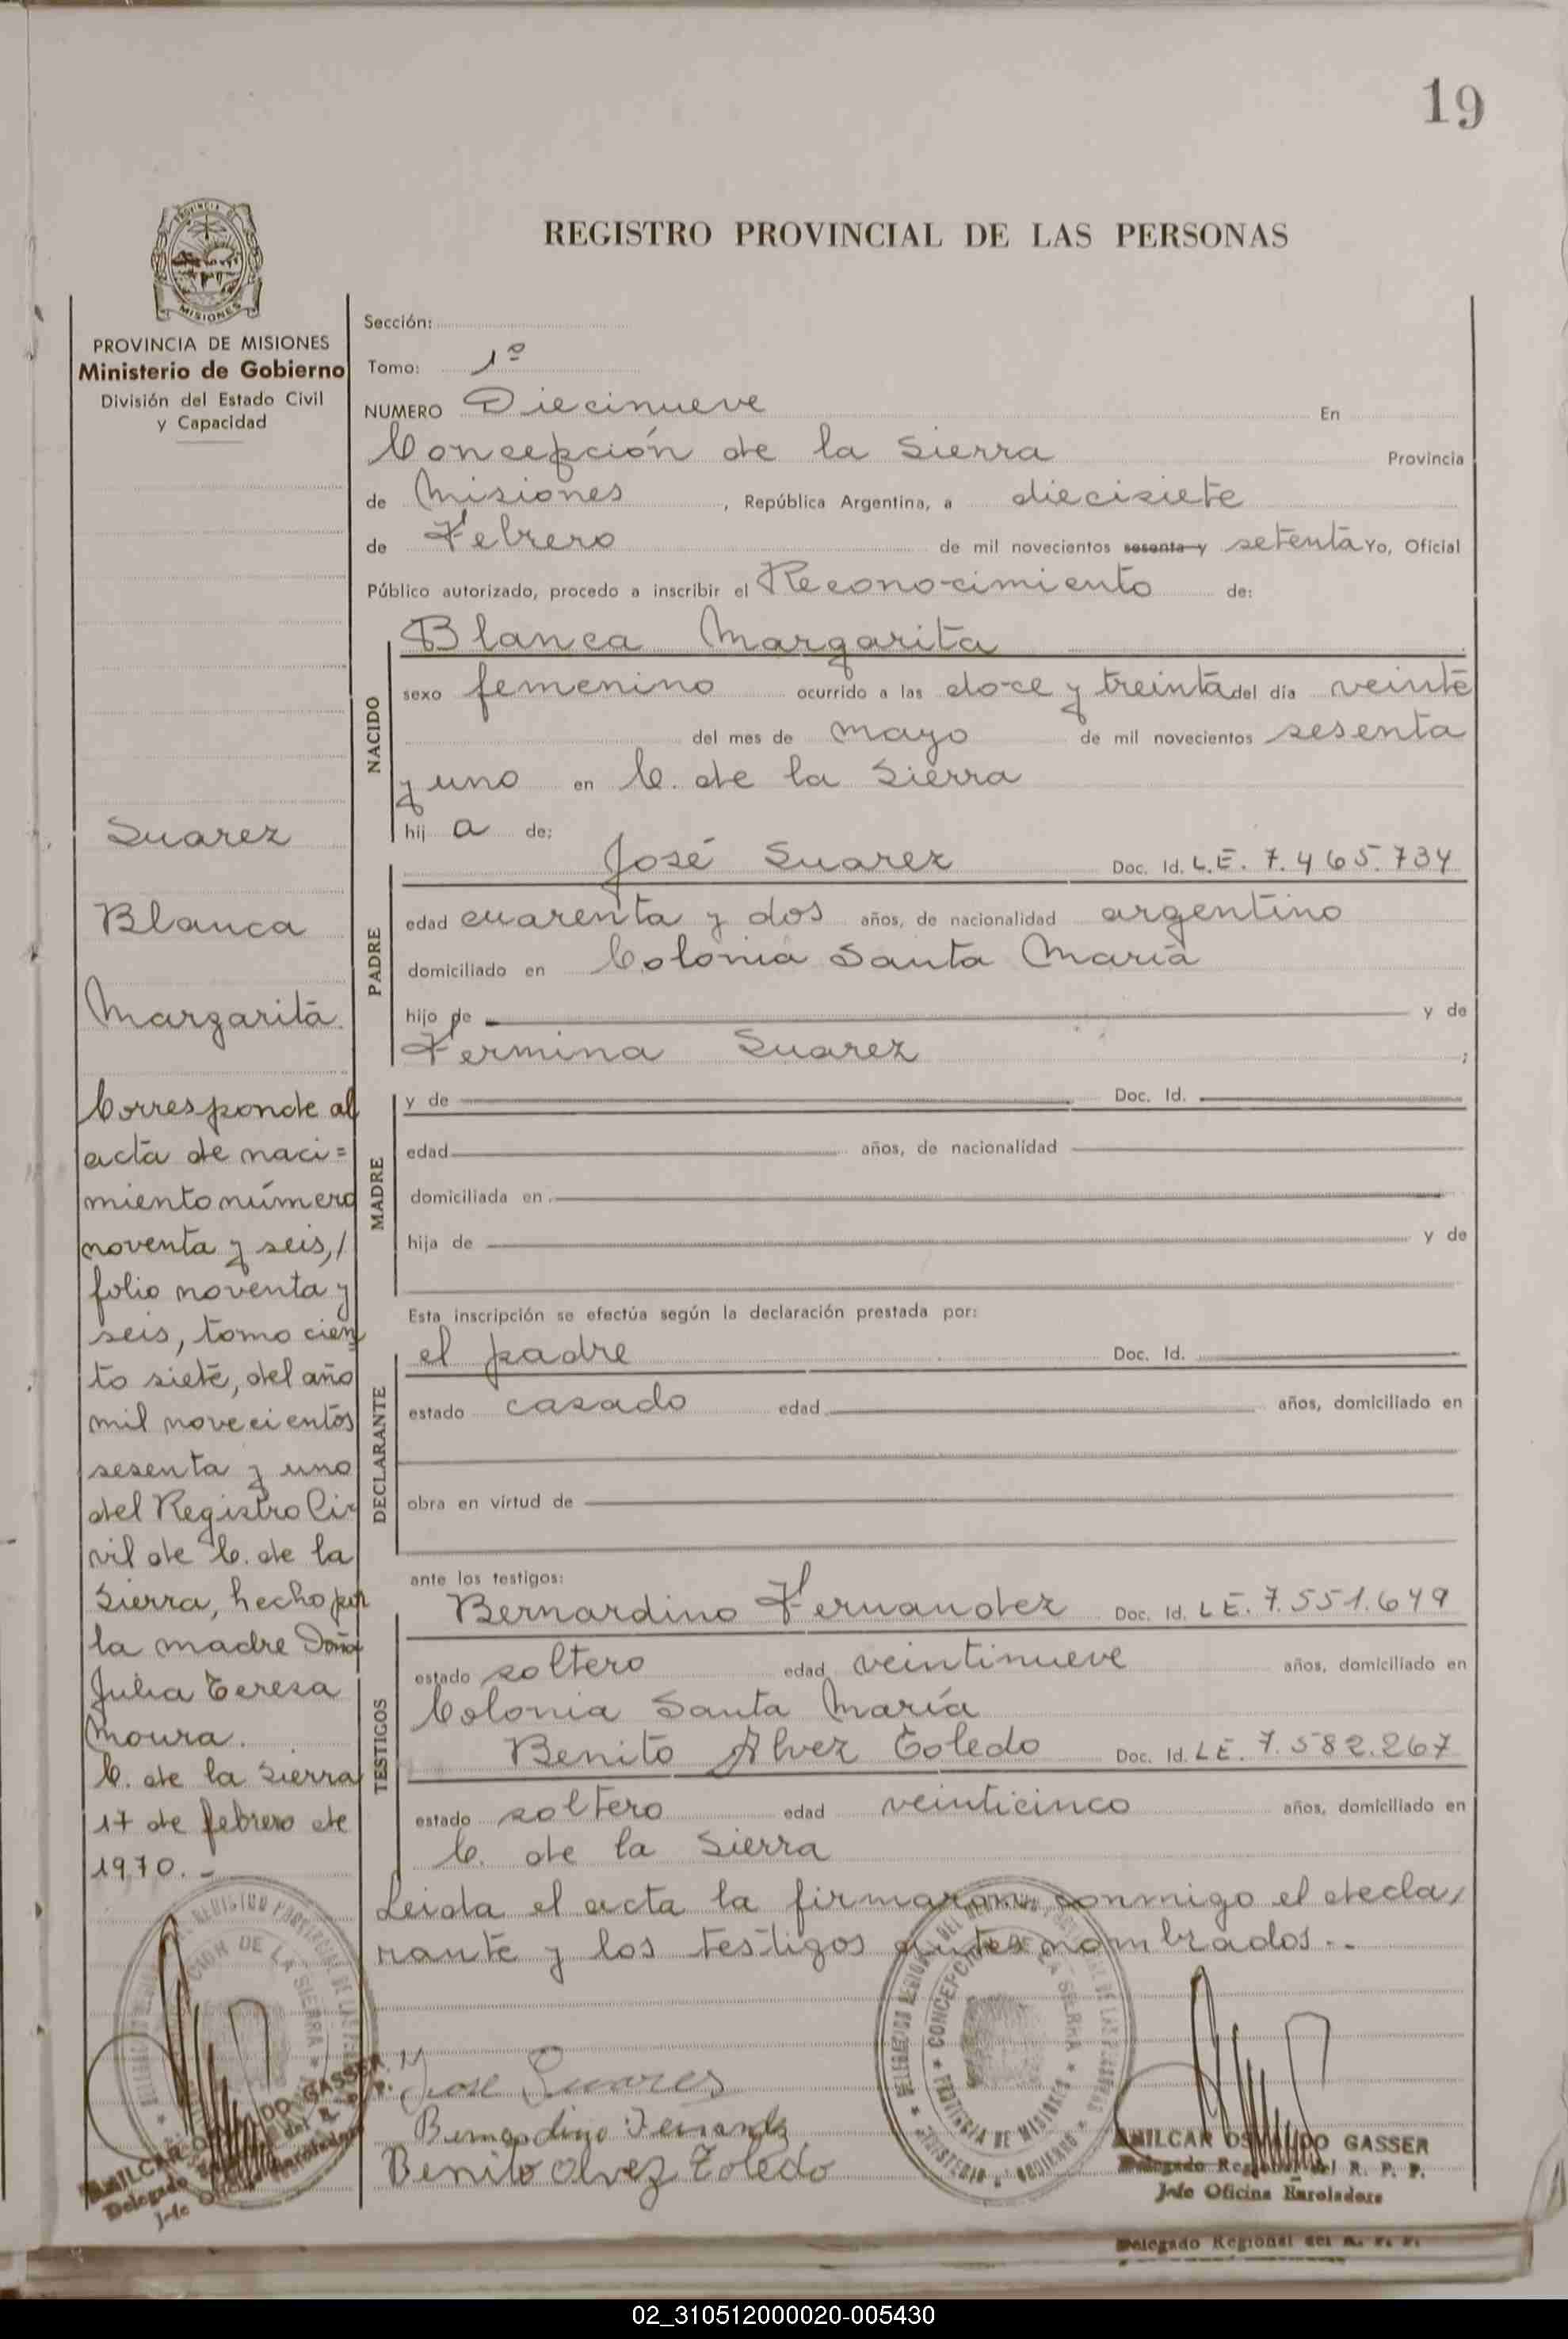 19
PROVINCIA DE
MISIONES
REGISTRO PROVINCIAL DE LAS PERSONAS
PROVINCIA DE MISIONES
Ministerio de Gobierno
División del Estado Civil
y Capacidad
Suarez
Blanca
Margarita
Corresponde al
acta de naci=
miento número
noventa y seis, /
folio noventa y
seis, tomo cien
to siete, del año
mil novecientos
sesenta y uno
del Registro Ci-
vil de C. de la
Sierra, hecho por
la madre Doña
Julia Teresa
Moura.
C. de la Sierra
17 de febrero de
1970.-
Sección:
Tomo: 1º
NUMERO Diecinueve En
Concepción de la Sierra Provincia
de Misiones, República Argentina, a diecisiete
de Febrero de mil novecientos sesenta y setenta Yo, Oficial
Público autorizado, procedo a inscribir el Reconocimiento de:
NACIDO
Blanca Margarita
sexo femenino ocurrido a las doce y treinta del día veinte
del mes de mayo de mil novecientos sesenta
y uno en C. de la Sierra
hij a de:
PADRE
José Suarez Doc. Id. L.E. 7.465.734
edad cuarenta y dos años, de nacionalidad argentino
domiciliado en Colonia Santa María
hijo de y de
Fermina Suarez ;
MADRE
y de Doc. Id.
edad años, de nacionalidad
domiciliada en
hija de y de
Esta inscripción se efectúa según la declaración prestada por:
DECLARANTE
el padre Doc. Id.
estado casado edad años, domiciliado en
obra en virtud de
ante los testigos:
TESTIGOS
Bernardino Fernandez Doc. Id. L.E. 7.551.649
estado soltero edad veintinueve años, domiciliado en
Colonia Santa María
Benito Alvez Toledo Doc. Id. L.E. 7.582.267
estado soltero edad veinticinco años, domiciliado en
C. de la Sierra
Leida el acta la firmaron conmigo el decla/
rante y los testigos antes nombrados.-
Jose Suares
Bernardino
Benito Olvez Toledo
CONCEPCION DE LA SIERRA
PROVINCIA DE MISIONES
AMILCAR OSVALDO GASSER
Delegado Regional del R. P. P.
Jefe Oficina Enroladora
AMILCAR OSVALDO GASSER
Delegado Regional del R. P. P.
Jefe Oficina Enroladora
Delegado Regional del R. P. P.
02_310512000020-005430